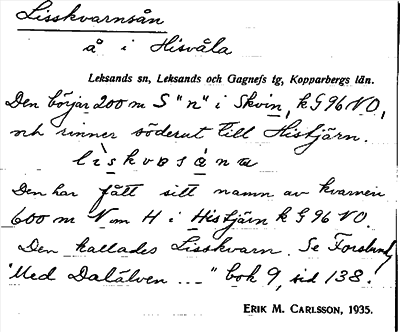 Lisskvarnsån
å i Hisvåla
Leksands sn, Leksands och Gagnefs tg, Kopparbergs län.
Den börjar 200 m S "n" i Skvin, k G 96 NO,
och rinner söderut till Histjärn.
lìskvasǻna
Den har fått sitt namn av kvarnen
600 m N om H i Histjärn k G 96 NO.
Den kallades Lisskvarn. Se Forslund,
"Med Dalälven ..." bok 9, sid 138.
ERIK M. CARLSSON, 1935.